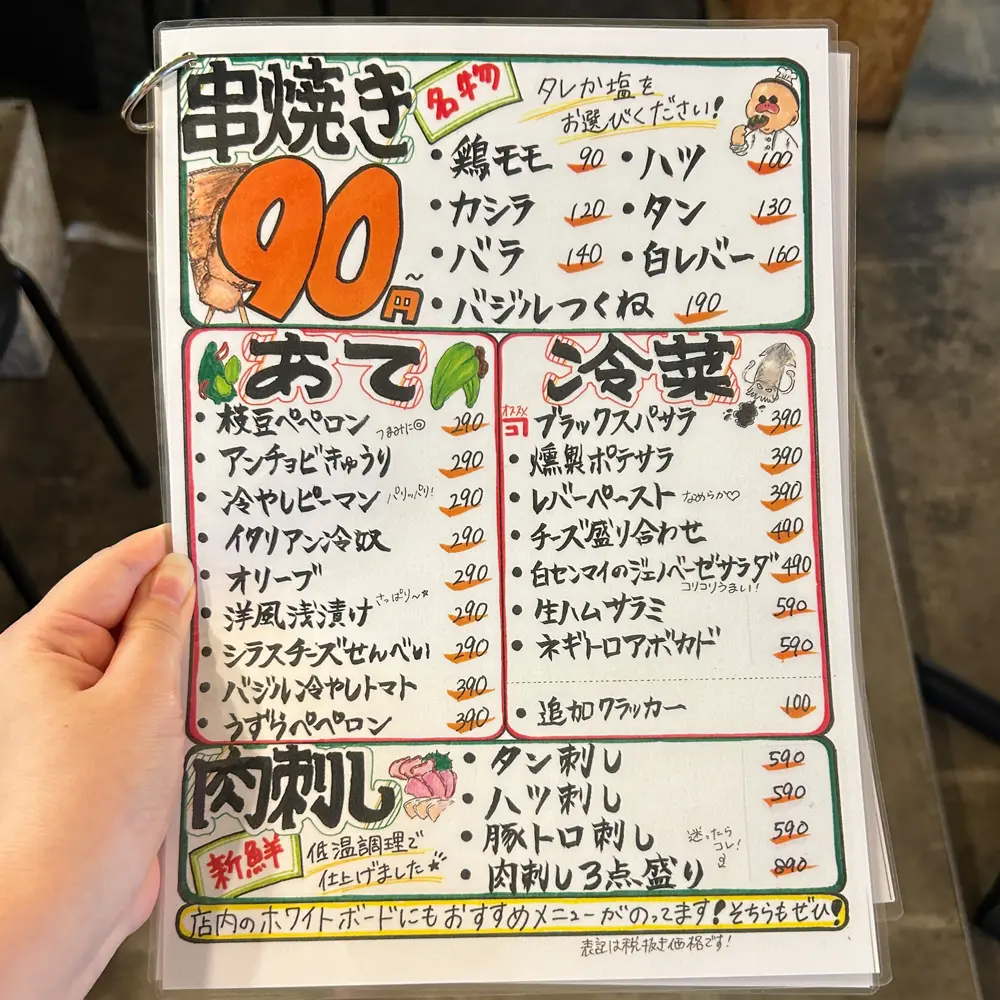 串焼き
名物
タレか塩を
お選びください!
90円~
・鶏モモ 90
・ハツ 100
・カシラ 120
・タン 130
・バラ 140
・白レバー 160
・バジルつくね 190
あて
・枝豆ペペロン つまみに◎ 290
・アンチョビきゅうり 290
・冷やしピーマン パリッパリ! 290
・イタリアン冷奴 290
・オリーブ 290
・洋風浅漬け さっぱり~☆ 290
・シラスチーズせんべい 290
・バジル冷やしトマト 390
・うずらペペロン 390
冷菜
オススメ
ブラックスパサラ 390
・燻製ポテサラ 390
・レバーペースト なめらか♡ 390
・チーズ盛り合わせ 490
・白センマイのジェノベーゼサラダ 490
コリコリうまい!
・生ハムサラミ 590
・ネギトロアボカド 590
・追加クラッカー 100
肉刺し
新鮮
低温調理で
仕上げました☆
・タン刺し 590
・ハツ刺し 590
・豚トロ刺し 590
・肉刺し3点盛り 890
迷ったら
コレ!
店内のホワイトボードにもおすすめメニューがのってます!そちらもぜひ!
表記は税抜き価格です!